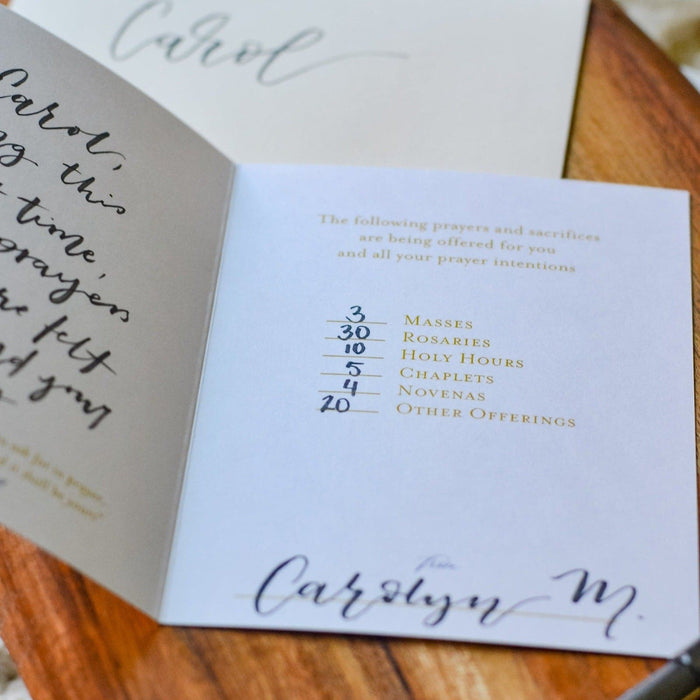 Carol
Carol,
this
time,
prayers
felt
your
The following prayers and sacrifices
are being offered for you
and all your prayer intentions
3 Masses
30 Rosaries
10 Holy Hours
5 Chaplets
4 Novenas
20 Other Offerings
From
Carolyn M.